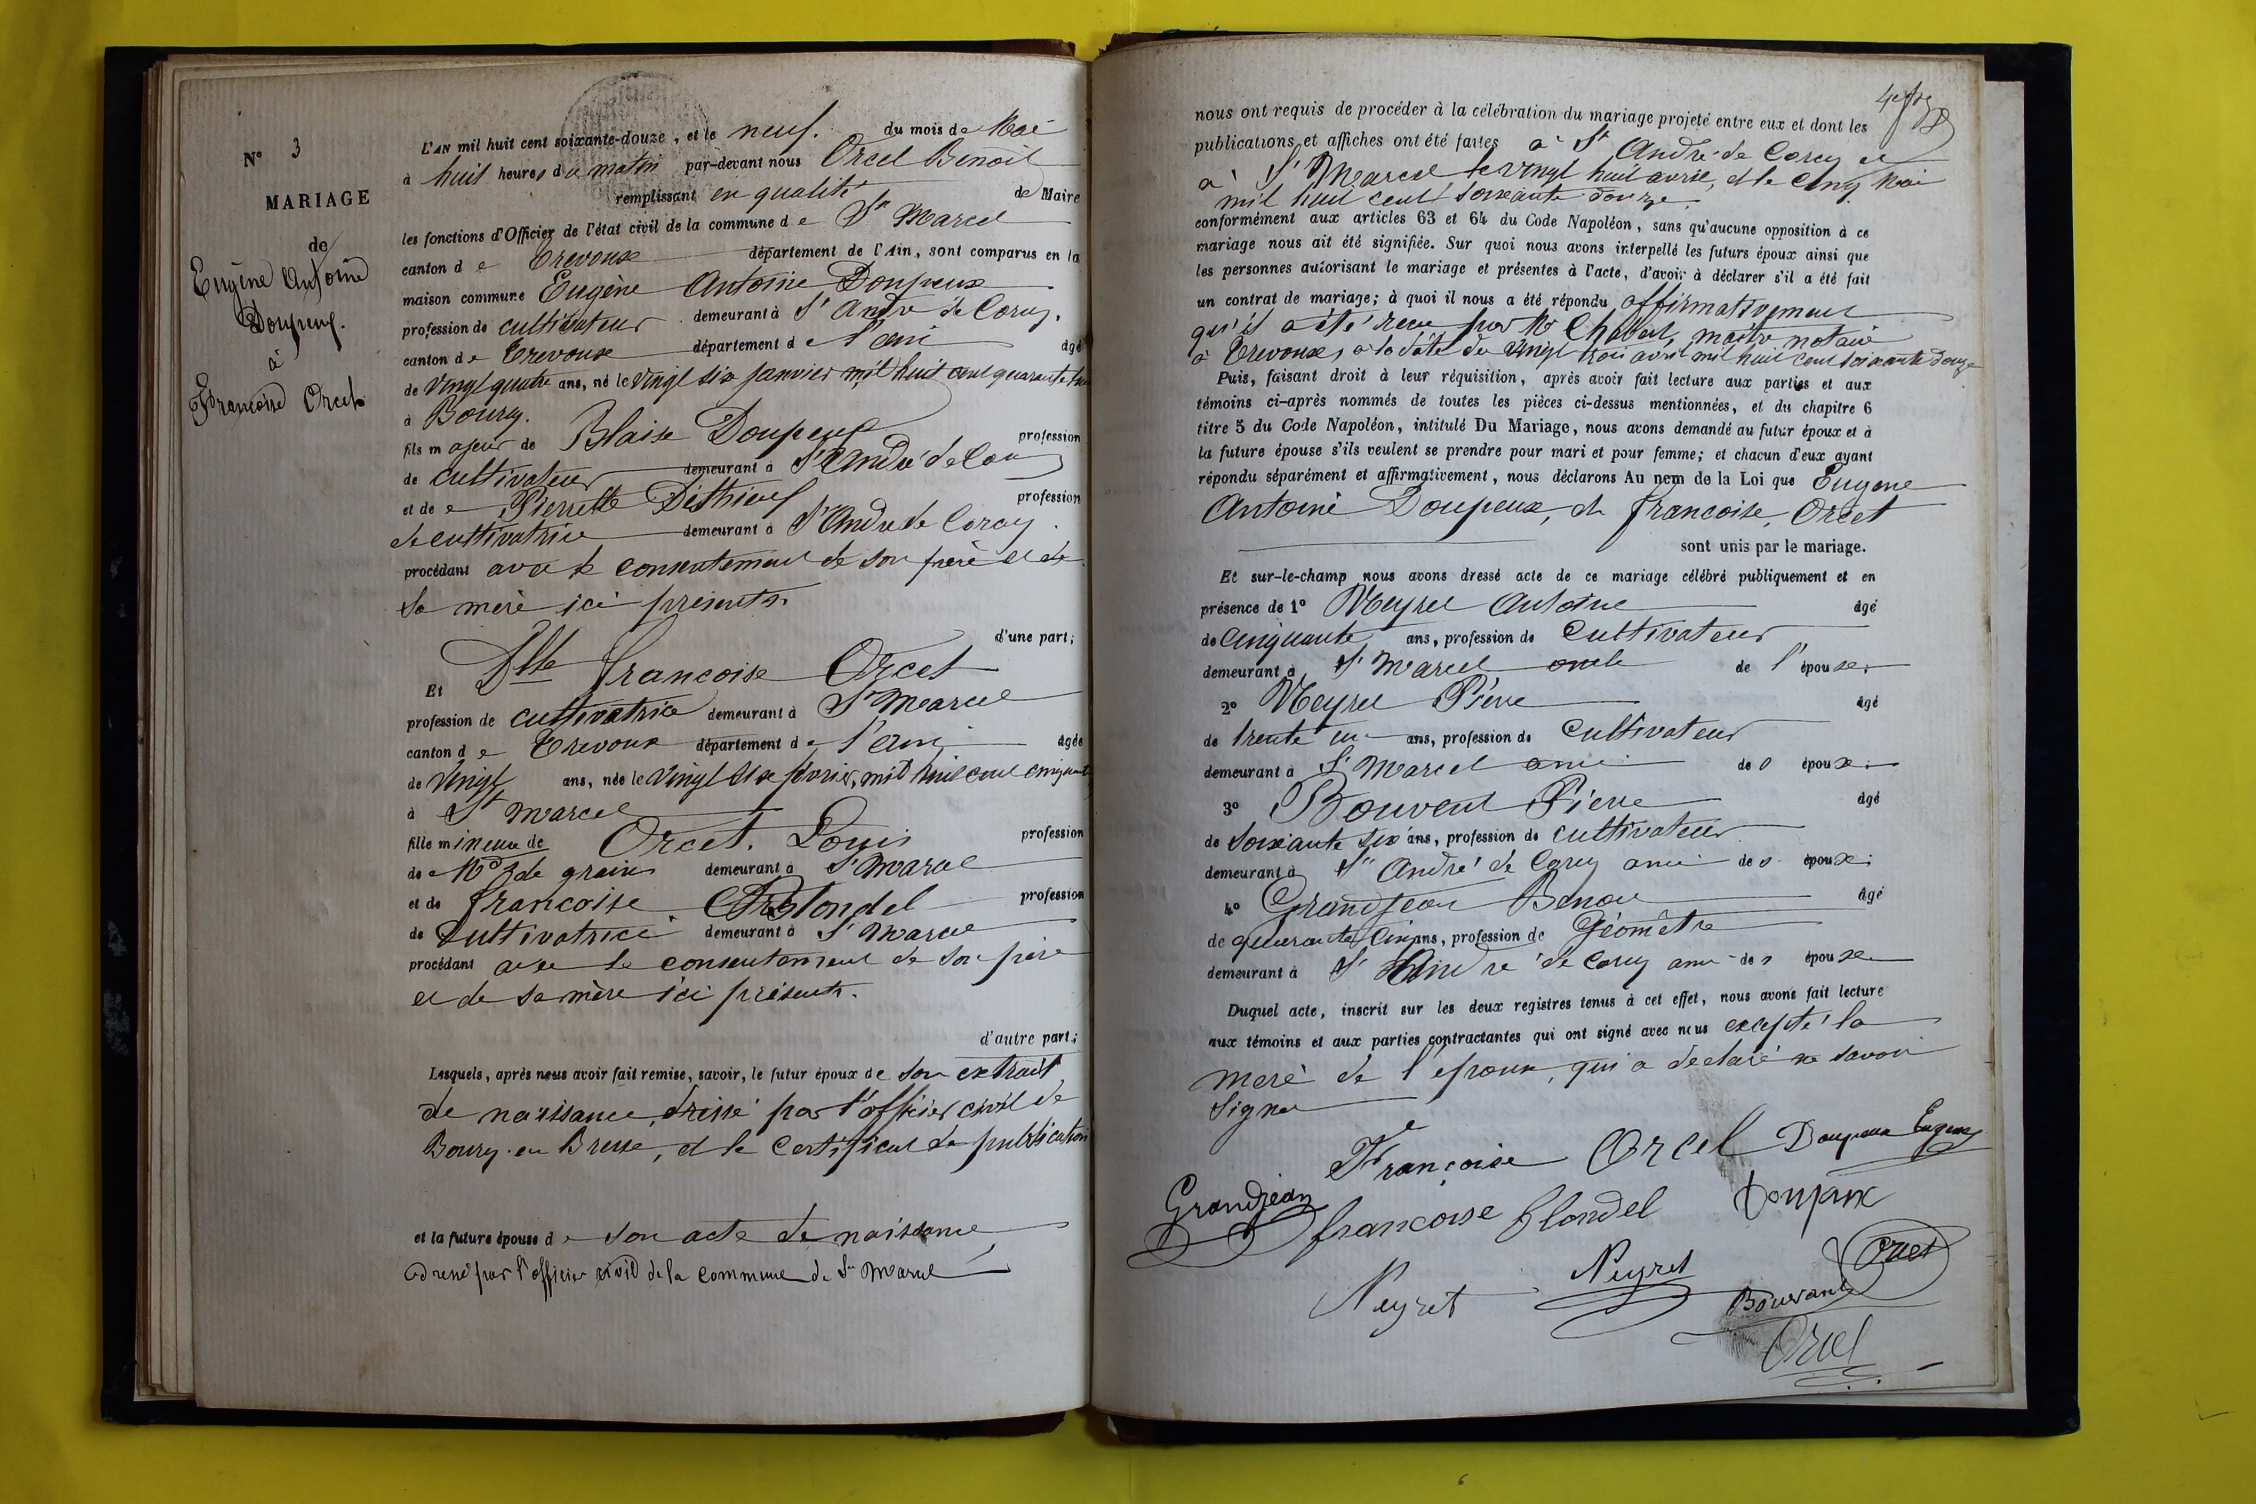 N° 3
MARIAGE
de
Eugène Antoine
Doupeux
à
Françoise Orcet
L'AN mil huit cent soixante-douze, et le neuf. du mois de Mai
à huit heures du matin par-devant nous Orcel Benoit
remplissant en qualité de Maire
les fonctions d'Officier de l'état civil de la commune de St Marcel
canton de Trevoux département de l'Ain, sont comparus en la
maison commune Eugène Antoine Doupeux
profession de cultivateur demeurant à St André de Corcy,
canton de Trevoux département de l'ain âgé
de vingt quatre ans, né le vingt six janvier mil huit cent quarante huit
à Bourg.
fils majeur de Blaise Doupeux profession
de cultivateur demeurant à St André de Corcy
et de Pierrette Déthieux profession
de cultivatrice demeurant à St André de Corcy.
procédant avec le consentement de son père et de
sa mère ici présents.
d'une part;
Et Dlle francoise Orcet
profession de cultivatrice demeurant à St Marcel
canton de Trevoux département de l'ain âgée
de vingt ans, née le vingt six fevrier, mil huit cent cinquante
à St Marcel
fille mineure de Orcet. Louis profession
de Md de grains demeurant à St Marcel
et de francoise Blondel profession
de Cultivatrice demeurant à St Marcel
procédant avec le consentement de son père
et de sa mère ici présents.
d'autre part;
Lesquels, après nous avoir fait remise, savoir, le futur époux de son extrait
de naissance, dressé par l'officier civil de
Bourg-en Bresse, et le certificat de publication
et la future épouse de son acte de naissance
dressé par l'officier civil de la commune de St Marcel
nous ont requis de procéder à la célébration du mariage projeté entre eux et dont les
publications et affiches ont été faites à St André de Corcy et
à St Marcel le vingt huit avril, et le cinq Mai
mil huit cent soixante douze.
conformément aux articles 63 et 64 du Code Napoléon, sans qu'aucune opposition à ce
mariage nous ait été signifiée. Sur quoi nous avons interpellé les futurs époux ainsi que
les personnes autorisant le mariage et présentes à l'acte, d'avoir à déclarer s'il a été fait
un contrat de mariage; à quoi il nous a été répondu affirmativement
qu'il a été recu par Me Chabert, maitre notaire
à Trevoux, à la date du vingt trois avril mil huit cent soixante douze
Puis, faisant droit à leur réquisition, après avoir fait lecture aux parties et aux
témoins ci-après nommés de toutes les pièces ci-dessus mentionnées, et du chapitre 6
titre 5 du Code Napoléon, intitulé Du Mariage, nous avons demandé au futur époux et à
la future épouse s'ils veulent se prendre pour mari et pour femme; et chacun d'eux ayant
répondu séparément et affirmativement, nous déclarons Au nom de la Loi que Eugene
Antoine Doupeux, et francoise, Orcet
sont unis par le mariage.
Et sur-le-champ nous avons dressé acte de ce mariage célébré publiquement et en
présence de 1° Neyret Antoine âgé
de Cinquante ans, profession de Cultivateur
demeurant à St Marcel oncle de l'épouse;
2° Neyret Pierre âgé
de trente un ans, profession de Cultivateur
demeurant à St Marcel ami des époux;
3° Bouvent Pierre âgé
de soixante six ans, profession de cultivateur
demeurant à St André de Corcy ami des époux;
4° Grandjean Benoit âgé
de quarante cinq ans, profession de Géomètre
demeurant à St André de Corcy ami des époux
Duquel acte, inscrit sur les deux registres tenus à cet effet, nous avons fait lecture
aux témoins et aux parties contractantes qui ont signé avec nous excepté la
mere de l'époux, qui a déclaré ne savoir
signer
Françoise Orcel Doupeux Eugene
Grandjean francoise blondel Doupeux
Neyret Neyret Orcet
Bouvant
Orcel